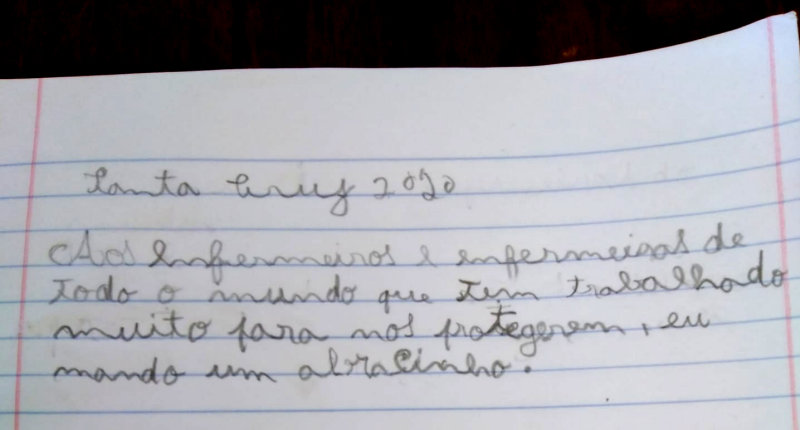 Santa Cruz 2020
Aos enfermeiros e enfermeiras de
todo o mundo que tem trabalhado
muito para nos protegerem, eu
mando um abracinho.